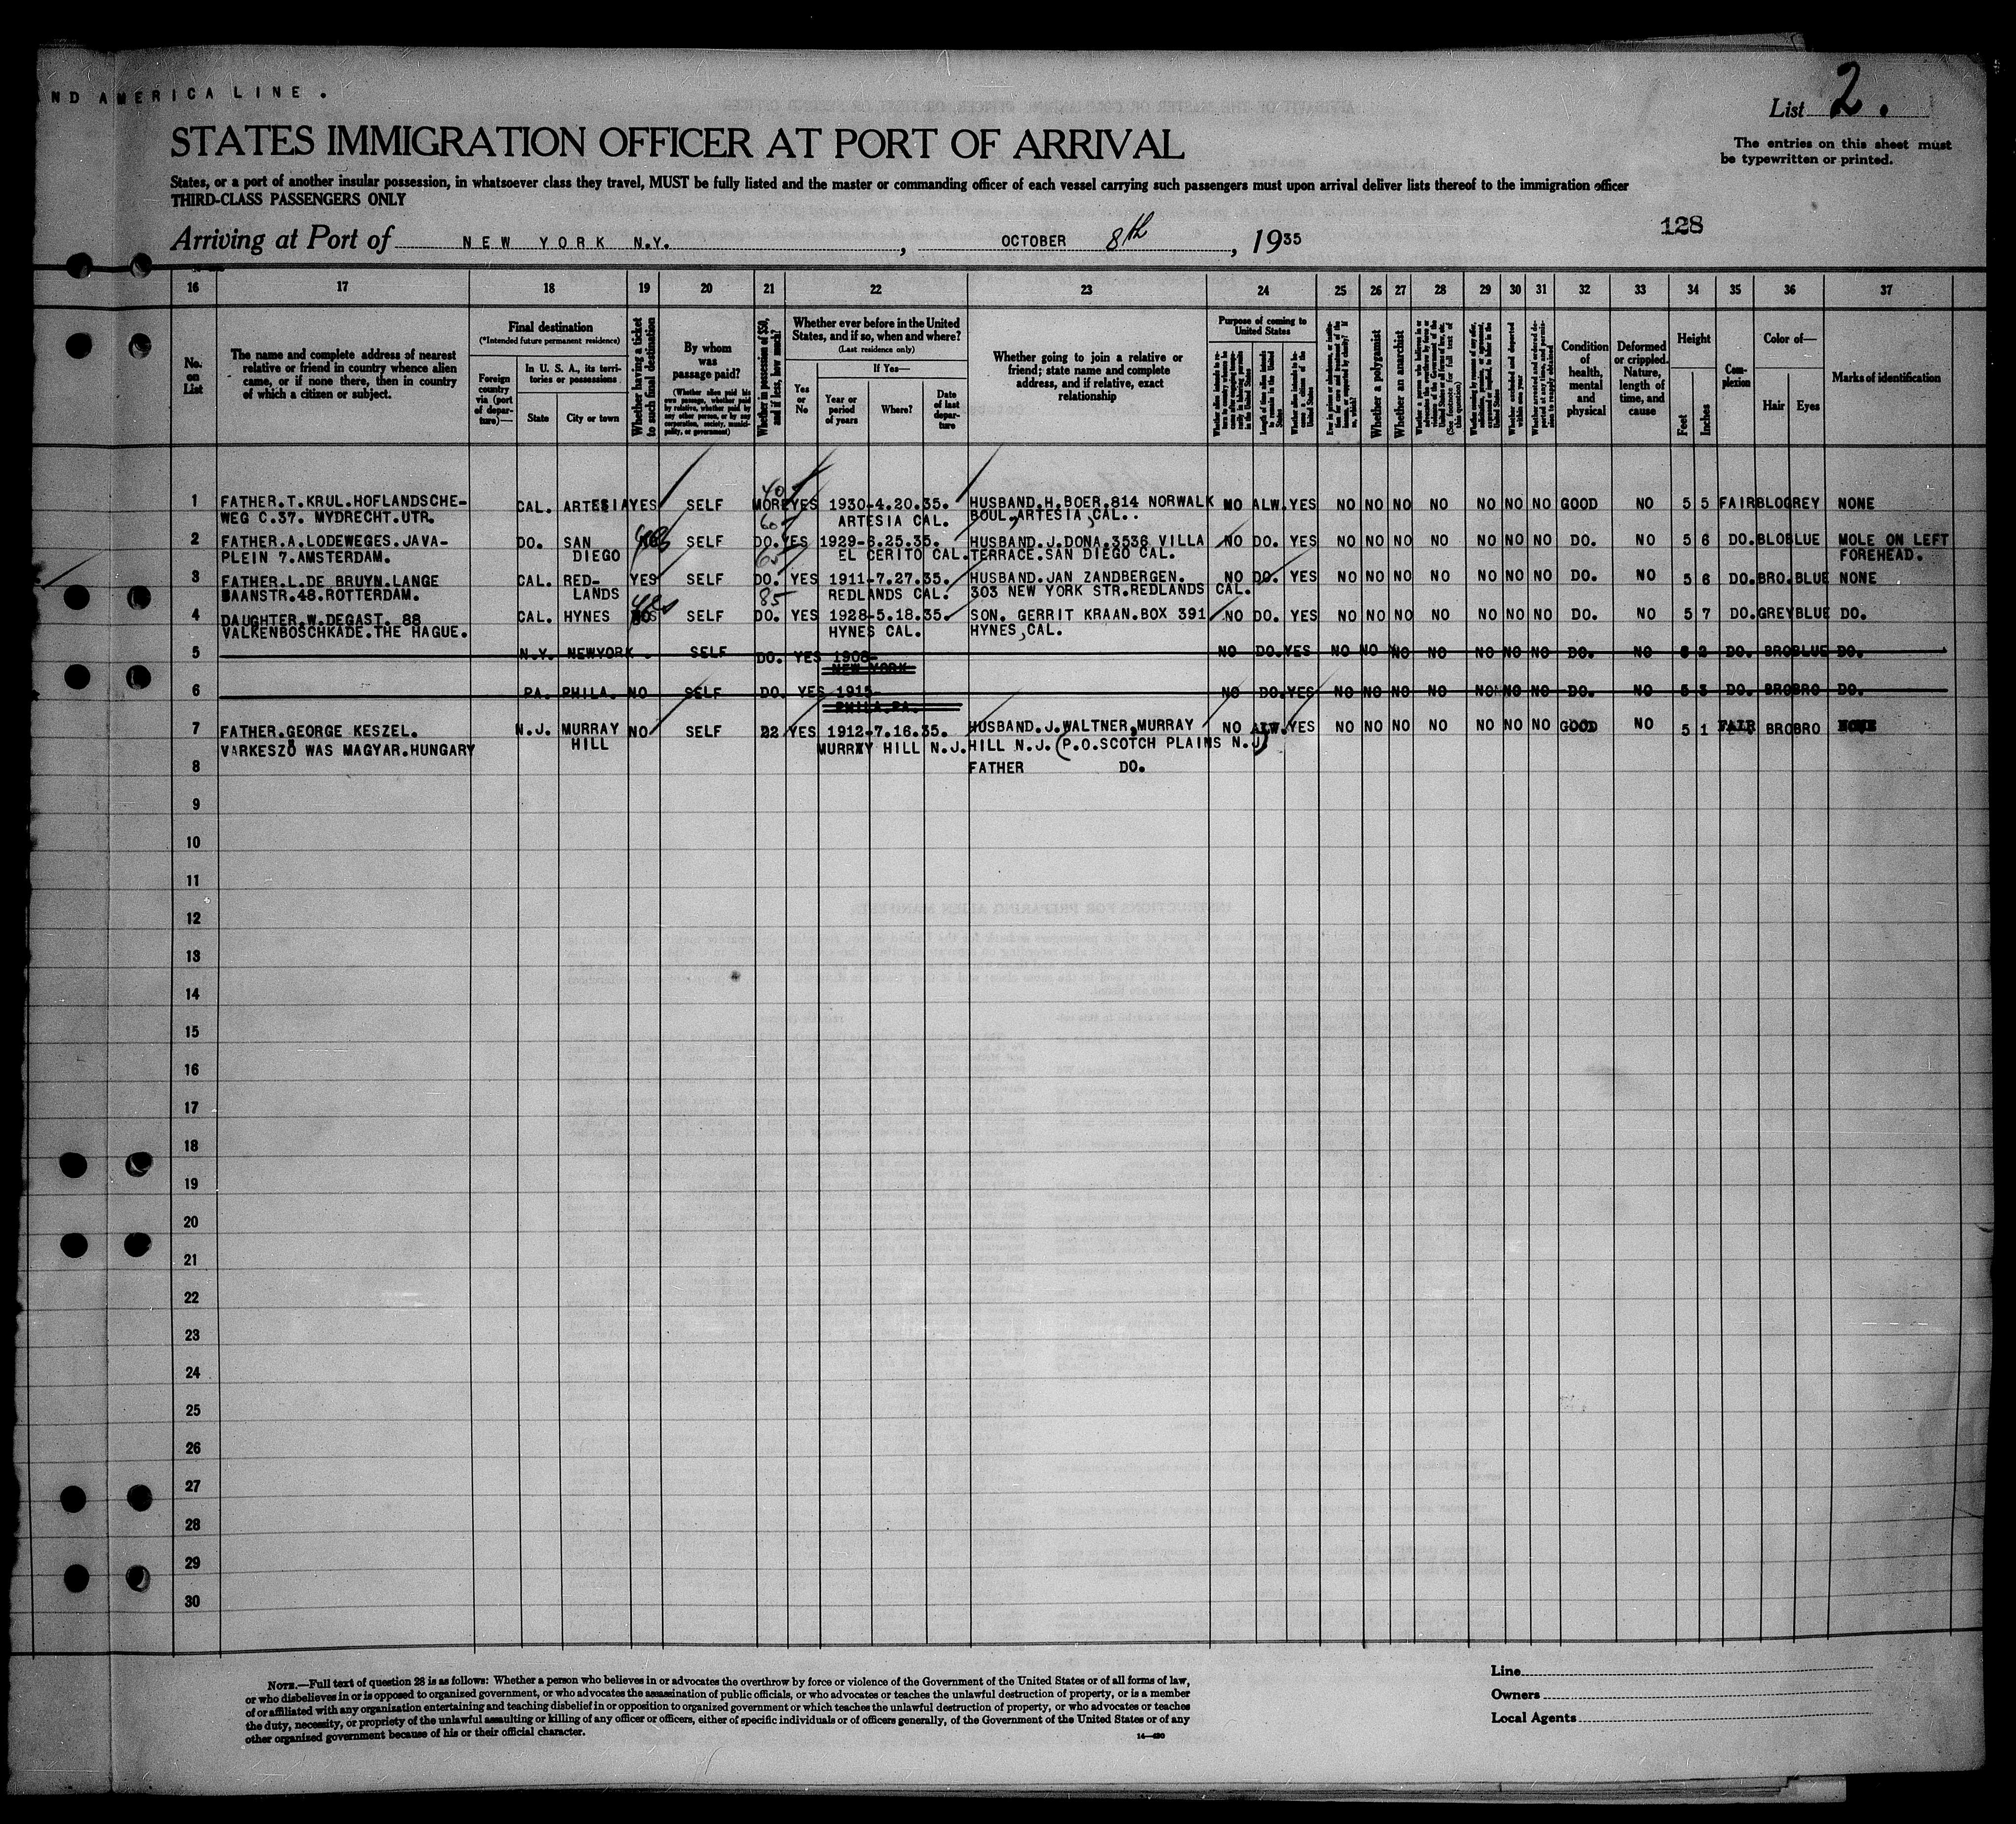 ND AMERICA LINE.
List 2.
STATES IMMIGRATION OFFICER AT PORT OF ARRIVAL
The entries on this sheet must
be typewritten or printed.
States, or a port of another insular possession, in whatsoever class they travel, MUST be fully listed and the master or commanding officer of each vessel carrying such passengers must upon arrival deliver lists thereof to the immigration officer
THIRD-CLASS PASSENGERS ONLY
128
Arriving at Port of NEW YORK N.Y., OCTOBER 8th, 1935
16 17 18 19 20 21 22 23 24 25 26 27 28 29 30 31 32 33 34 35 36 37
No. on List
The name and complete address of nearest relative or friend in country whence alien came, or if none there, then in country of which a citizen or subject.
Final destination
(*Intended future permanent residence)
Foreign country via (port of departure)—
In U. S. A., its territories or possessions
State
City or town
Whether having a ticket to such final destination
By whom was passage paid?
(Whether alien paid his own passage, whether paid by relative, whether paid by any other person, or by any corporation, society, municipality, or government)
Whether in possession of $50, and if less, how much?
Whether ever before in the United States, and if so, when and where?
(Last residence only)
Yes or No
If Yes—
Year or period of years
Where?
Date of last departure
Whether going to join a relative or friend; state name and complete address, and if relative, exact relationship
Purpose of coming to United States
Whether a polygamist
Whether an anarchist
Condition of health, mental and physical
Deformed or crippled. Nature, length of time, and cause
Height
Feet
Inches
Complexion
Color of—
Hair
Eyes
Marks of identification
40
1 FATHER.T.KRUL.HOFLANDSCHE- CAL. ARTESIA YES SELF MORE YES 1930-4.20.35. HUSBAND.H.BOER.814 NORWALK NO ALW. YES NO NO NO NO NO NO NO GOOD NO 5 5 FAIR BLO GREY NONE
WEG C.37. MYDRECHT.UTR. 60 ARTESIA CAL. BOUL, ARTESIA, CAL..
2 FATHER.A.LODEWEGES.JAVA- DO. SAN yes SELF DO. YES 1929-6.25.35. HUSBAND.J.DONA.3536 VILLA NO DO. YES NO NO NO NO NO NO NO DO. NO 5 6 DO. BLO BLUE MOLE ON LEFT
PLEIN 7.AMSTERDAM. DIEGO 65 EL CERITO CAL. TERRACE.SAN DIEGO CAL. FOREHEAD.
3 FATHER.L.DE BRUYN.LANGE CAL. RED- YES SELF DO. YES 1911-7.27.35. HUSBAND.JAN ZANDBERGEN. NO DO. YES NO NO NO NO NO NO NO DO. NO 5 6 DO. BRO. BLUE NONE
BAANSTR.48.ROTTERDAM. LANDS 85 REDLANDS CAL. 303 NEW YORK STR.REDLANDS CAL.
4 DAUGHTER.W.DEGAST. 88 CAL. HYNES yes SELF DO. YES 1928-5.18.35. SON. GERRIT KRAAN.BOX 391 NO DO. YES NO NO NO NO NO NO NO DO. NO 5 7 DO. GREY BLUE DO.
VALKENBOSCHKADE.THE HAGUE. HYNES CAL. HYNES, CAL.
5 N.Y. NEWYORK. SELF DO. YES 1908- NO DO. YES NO NO NO NO NO NO NO DO. NO 2 DO. BRO BLUE DO.
NEW YORK
6 PA. PHILA. NO SELF DO. YES 1915- NO DO. YES NO NO NO NO NO NO NO DO. NO 5 3 DO. BRO BRO DO.
PHILA.PA.
7 FATHER.GEORGE KESZEL. N.J. MURRAY NO SELF 22 YES 1912-7.16.35. HUSBAND.J.WALTNER,MURRAY NO ALW. YES NO NO NO NO NO NO NO GOOD NO 5 1 FAIR BRO BRO NONE
VARKESZÖ WAS MAGYAR.HUNGARY HILL MURRAY HILL N.J. HILL N.J. (P.O.SCOTCH PLAINS N.J)
8 FATHER DO.
9
10
11
12
13
14
15
16
17
18
19
20
21
22
23
24
25
26
27
28
29
30
NOTE.—Full text of question 28 is as follows: Whether a person who believes in or advocates the overthrow by force or violence of the Government of the United States or of all forms of law,
or who disbelieves in or is opposed to organized government, or who advocates the assassination of public officials, or who advocates or teaches the unlawful destruction of property, or is a member
of or affiliated with any organization entertaining and teaching disbelief in or opposition to organized government or which teaches the unlawful destruction of property, or who advocates or teaches
the duty, necessity, or propriety of the unlawful assaulting or killing of any officer or officers, either of specific individuals or of officers generally, of the Government of the United States or of any
other organized government because of his or their official character.
14—490
Line
Owners
Local Agents